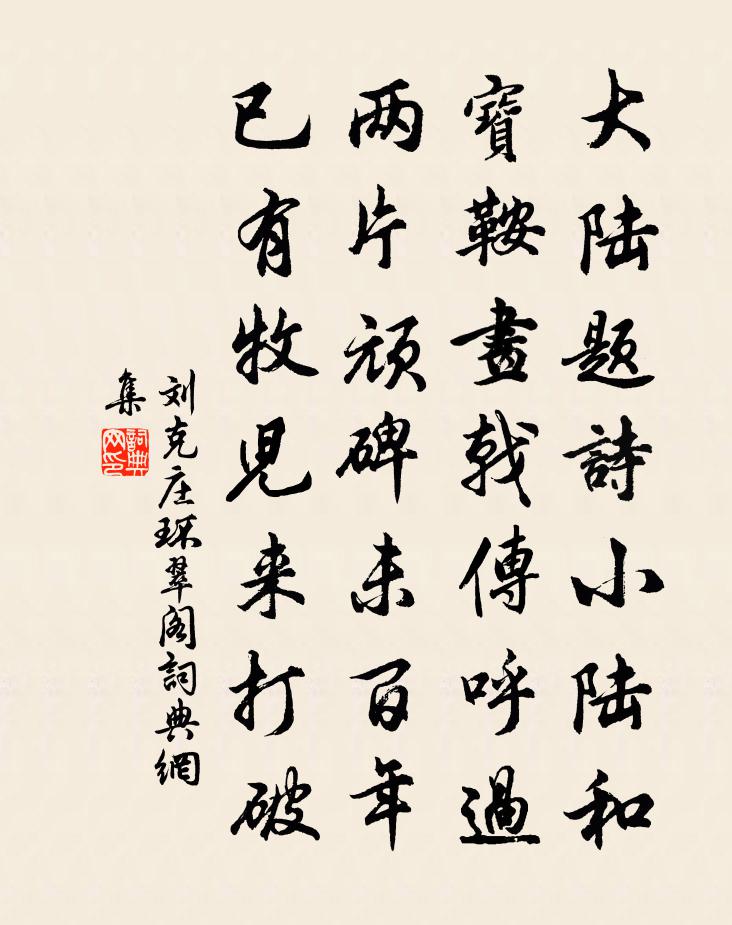 大陆题詩小陆和
寶鞍畫戟傳呼過
两片顽碑未百年
已有牧児来打破
刘克庄环翠阁詞典網
集
詞典网印